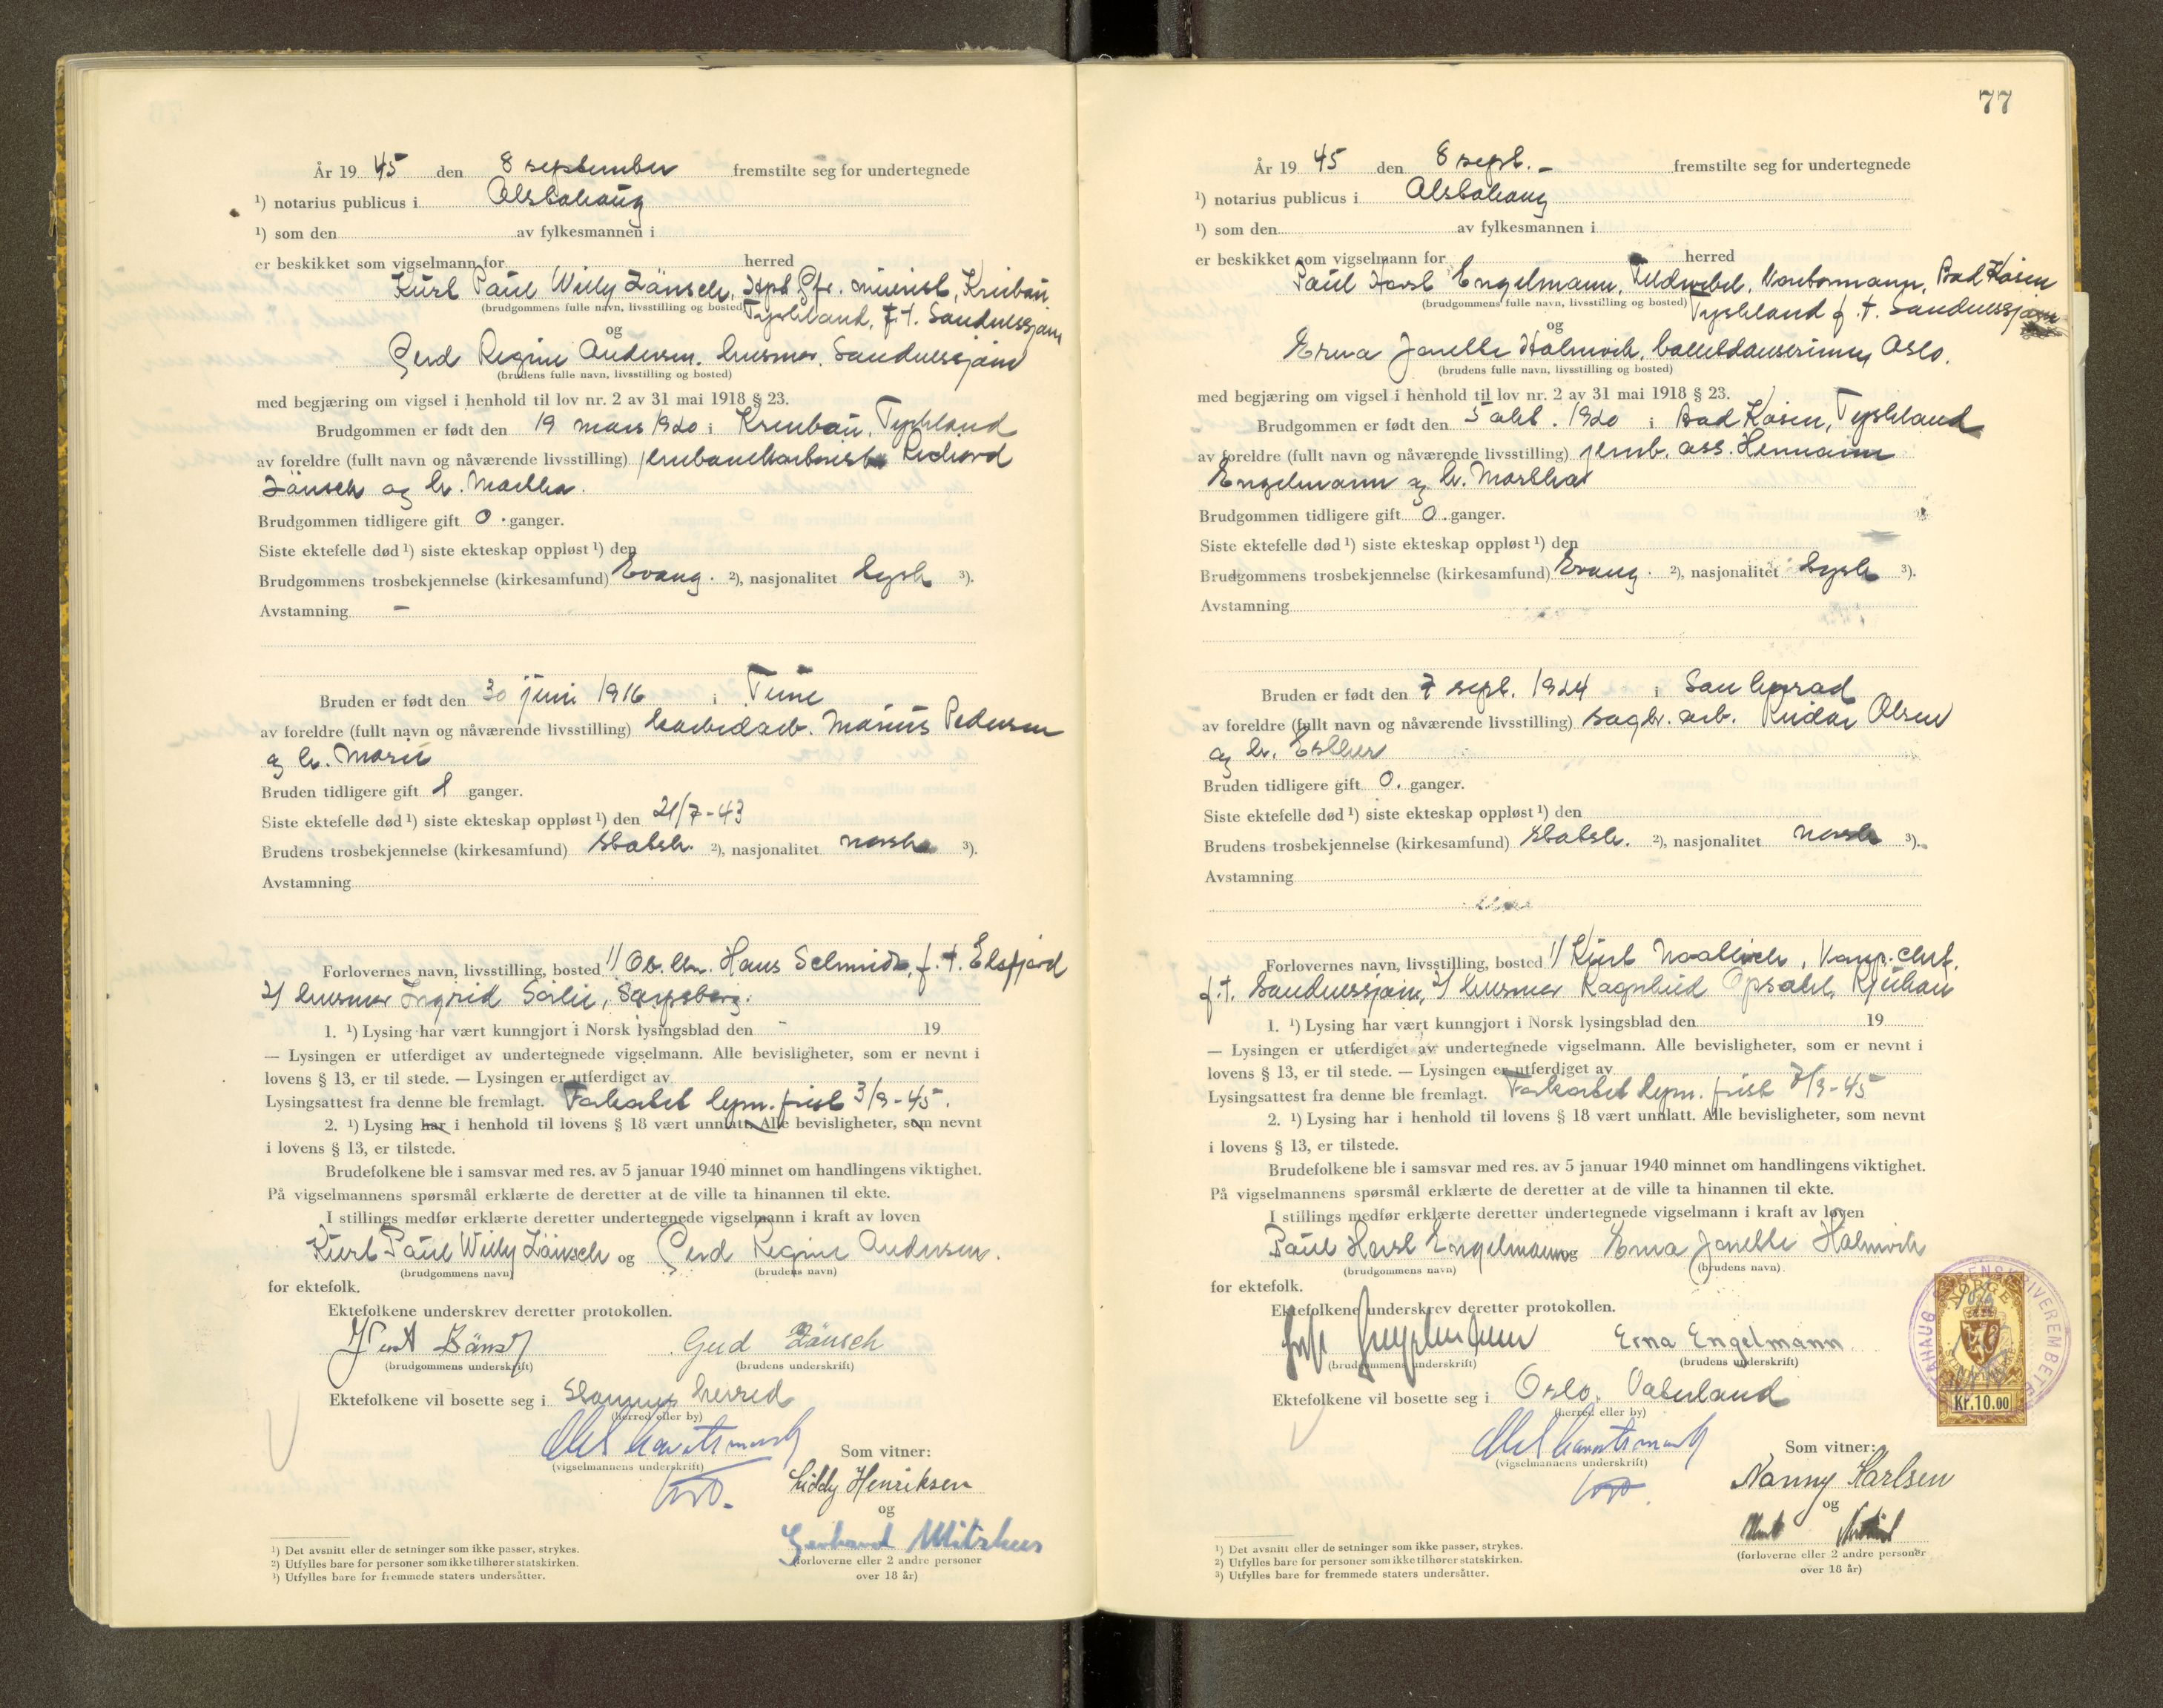 År 19 45 den 8 september fremstilte seg for undertegnede
¹) notarius publicus i Alstahaug
¹) som den av fylkesmannen i
er beskikket som vigselmann for herred
Kurt Paul Willy Zänsch, Hpt. Gfr. minist,
(brudgommens fulle navn, livsstilling og bosted)
Tyskland, f.t. Sandnessjøen
og
Gerd Regine Andersen. husmor. Sandnessjøen
(brudens fulle navn, livsstilling og bosted)
med begjæring om vigsel i henhold til lov nr. 2 av 31 mai 1918 § 23.
Brudgommen er født den 19 mars 1920 i Tyskland
av foreldre (fullt navn og nåværende livsstilling) Richard
Zänsch og h. Martha.
Brudgommen tidligere gift 0. ganger.
Siste ektefelle død ¹) siste ekteskap oppløst ¹) den
Brudgommens trosbekjennelse (kirkesamfund) Evang. ²), nasjonalitet tysk ³).
Avstamning –
Bruden er født den 30 juni 1916 i Tune
av foreldre (fullt navn og nåværende livsstilling) Marius Pedersen
og h. Marie
Bruden tidligere gift 1 ganger.
Siste ektefelle død ¹) siste ekteskap oppløst ¹) den 21/7-43
Brudens trosbekjennelse (kirkesamfund) statsk. ²), nasjonalitet norsk ³).
Avstamning
Forlovernes navn, livsstilling, bosted 1) Ob. Hans Schmidt, f.t. Elsfjord
2) husmor Ingrid Sørlie, Sarpsborg.
1. ¹) Lysing har vært kunngjort i Norsk lysingsblad den - 19
— Lysingen er utferdiget av undertegnede vigselmann. Alle bevisligheter, som er nevnt i
lovens § 13, er til stede. — Lysingen er utferdiget av
Lysingsattest fra denne ble fremlagt. Forkortet lysn. frist 3/9-45.
2. ¹) Lysing har i henhold til lovens § 18 vært unnlatt. Alle bevisligheter, som nevnt
i lovens § 13, er tilstede.
Brudefolkene ble i samsvar med res. av 5 januar 1940 minnet om handlingens viktighet.
På vigselmannens spørsmål erklærte de deretter at de ville ta hinannen til ekte.
I stillings medfør erklærte deretter undertegnede vigselmann i kraft av loven
Kurt Paul Willy Zänsch og Gerd Regine Andersen.
(brudgommens navn) (brudens navn)
for ektefolk.
Ektefolkene underskrev deretter protokollen.
Kurt Zänsch Gerd Zänsch
(brudgommens underskrift) (brudens underskrift)
Ektefolkene vil bosette seg i herred
(herred eller by)
(vigselmannens underskrift)
Som vitner:
Liddy Henriksen
og
Gerhard
(forloverne eller 2 andre personer
over 18 år)
¹) Det avsnitt eller de setninger som ikke passer, strykes.
²) Utfylles bare for personer som ikke tilhører statskirken.
³) Utfylles bare for fremmede staters undersåtter.
77
År 19 45 den 8 sept. – fremstilte seg for undertegnede
¹) notarius publicus i Alstahaug
¹) som den av fylkesmannen i
er beskikket som vigselmann for herred
Paul Horst Engelmann, Feldwebel, Bad Kösen
(brudgommens fulle navn, livsstilling og bosted)
Tyskland f.t. Sandnessjøen
og
Erna Jonette Holmvik, balletdanserinne, Oslo.
(brudens fulle navn, livsstilling og bosted)
med begjæring om vigsel i henhold til lov nr. 2 av 31 mai 1918 § 23.
Brudgommen er født den 5 okt. 1920 i Bad Kösen, Tyskland
av foreldre (fullt navn og nåværende livsstilling) jernb. ass. Hermann
Engelmann og h. Martha
Brudgommen tidligere gift 0. ganger.
Siste ektefelle død ¹) siste ekteskap oppløst ¹) den
Brudgommens trosbekjennelse (kirkesamfund) Evang. ²), nasjonalitet tysk ³).
Avstamning
Bruden er født den 7 sept. 1924 i Sauherad
av foreldre (fullt navn og nåværende livsstilling) sagbr. arb. Reidar Olsen
og h. Esther
Bruden tidligere gift 0. ganger.
Siste ektefelle død ¹) siste ekteskap oppløst ¹) den
Brudens trosbekjennelse (kirkesamfund) statsk. ²), nasjonalitet norsk ³).
Avstamning
Forlovernes navn, livsstilling, bosted 1) Kurt
f.t. Sandnessjøen, 2) husmor Ragnhild Opsahl, Rjukan
1. ¹) Lysing har vært kunngjort i Norsk lysingsblad den 19
— Lysingen er utferdiget av undertegnede vigselmann. Alle bevisligheter, som er nevnt i
lovens § 13, er til stede. — Lysingen er utferdiget av
Lysingsattest fra denne ble fremlagt. Forkortet lysn. frist 7/9-45
2. ¹) Lysing har i henhold til lovens § 18 vært unnlatt. Alle bevisligheter, som nevnt
i lovens § 13, er tilstede.
Brudefolkene ble i samsvar med res. av 5 januar 1940 minnet om handlingens viktighet.
På vigselmannens spørsmål erklærte de deretter at de ville ta hinannen til ekte.
I stillings medfør erklærte deretter undertegnede vigselmann i kraft av loven
Paul Horst Engelmann og Erna Jonette Holmvik
(brudgommens navn) (brudens navn)
for ektefolk.
Ektefolkene underskrev deretter protokollen.
Engelmann Erna Engelmann
(brudgommens underskrift) (brudens underskrift)
NORGE
Kr.10.00
Ektefolkene vil bosette seg i Oslo.
(herred eller by)
(vigselmannens underskrift)
Som vitner:
Nanny Karlsen
og
(forloverne eller 2 andre personer
over 18 år)
¹) Det avsnitt eller de setninger som ikke passer, strykes.
²) Utfylles bare for personer som ikke tilhører statskirken.
³) Utfylles bare for fremmede staters undersåtter.